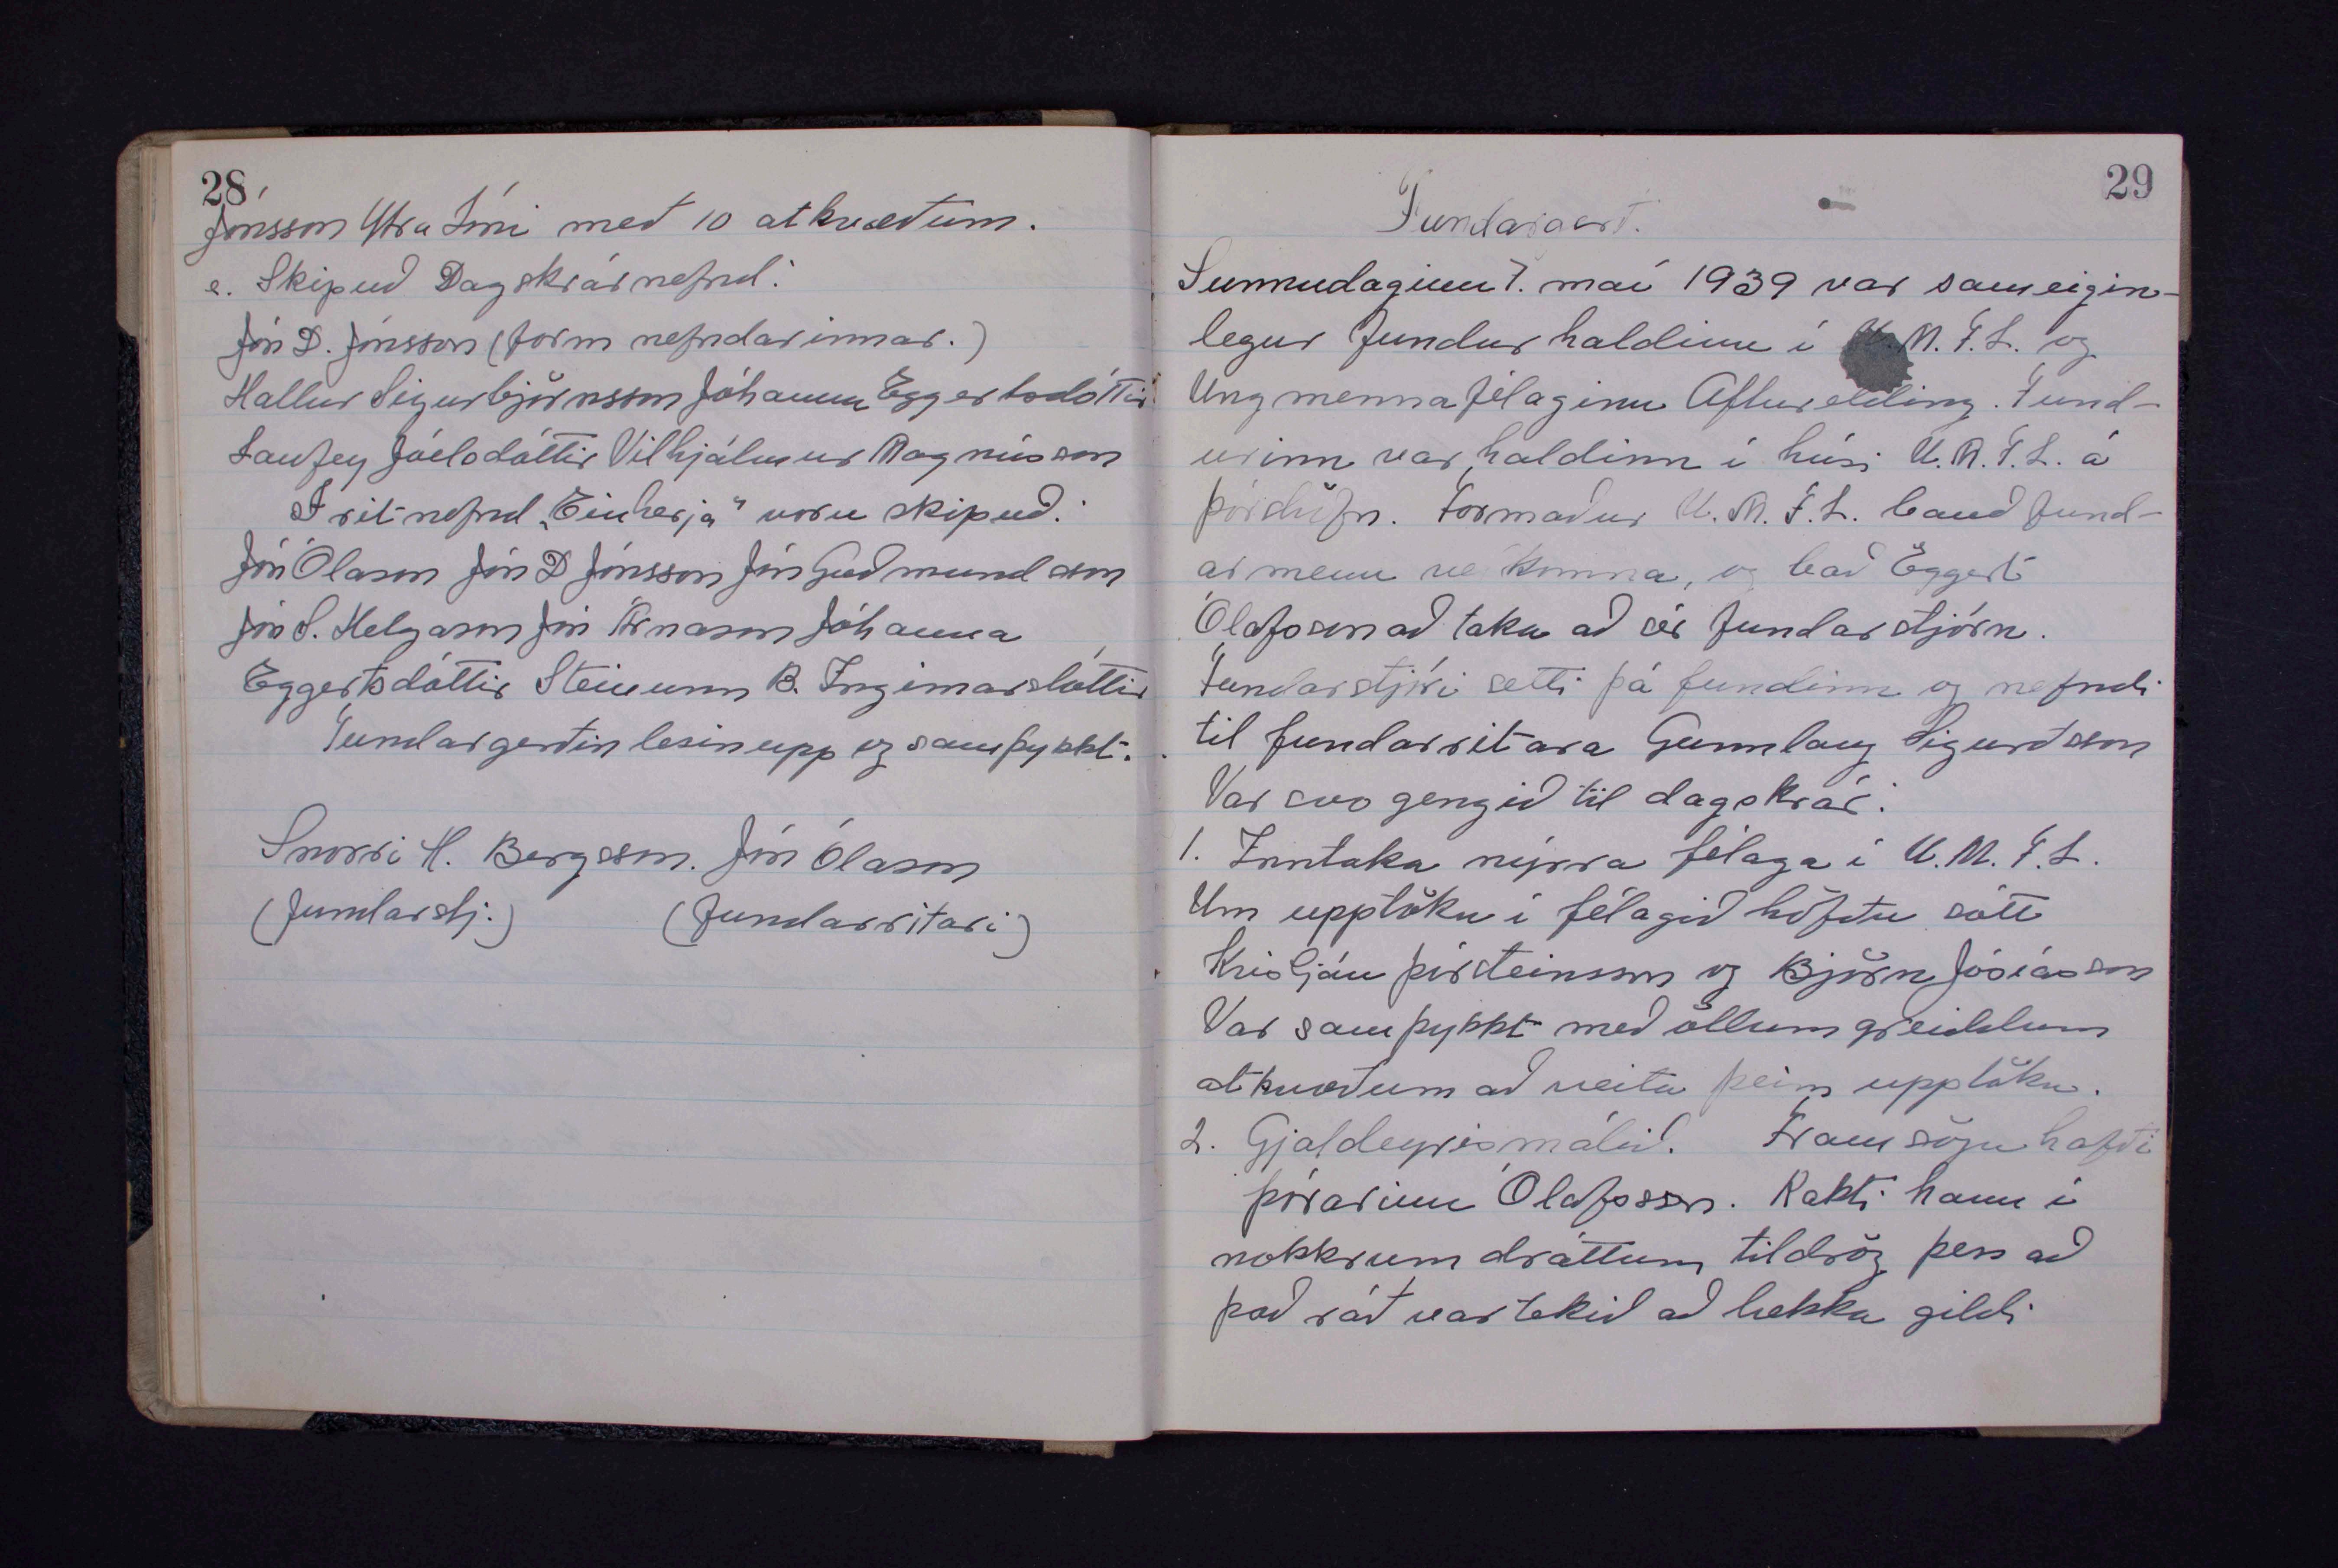 28
Jónsson Ytra Lóni með 10 atkvæðum.
e. Skipuð Dagskrárnefnd:
Jón D. Jónsson (form nefndarinnar.)
Hallur Sigurbjörnsson Jóhanna Eggertsdóttir
Laufey Jóelsdóttir Vilhjálmur Magnússon
Í ritnefnd „Einherja" voru skipuð:
Jón Ólason Jón D Jónsson Jón Guðmundsson
Jón S. Helgason Jón Árnason Jóhanna
Eggertsdóttir Steinunn B. Ingimarsdóttir
Fundargerðin lesin upp og samþykkt.
Snorri H. Bergsson. Jón Ólason
(fundarstj.) (fundarritari)
29
Fundargerð.
Sunnudaginn 7. maí 1939 var sameigin-
legur fundur haldinn í U.M.F.L. og
Ungmennafélaginu Afturelding. Fund-
urinn var haldinn í húsi U.M.F.L. á
Þórshöfn. Formaður U.M.F.L. bauð fund-
armenn velkomna, og bað Eggert
Ólafsson að taka að sér fundarstjórn.
Fundarstjóri setti þá fundinn og nefndi
til fundarritara Gunnlaug Sigurðsson
Var svo gengið til dagskrár:
1. Inntaka nýrra félaga í U.M.F.L.
Um upptöku í félagið höfðu sótt
Kristján Þórsteinsson og Björn Jósíasson
Var samþykkt með öllum greiddum
atkvæðum að veita þeim upptöku.
2. Gjaldeyrismálið. Framsögu hafði
Þórarinn Ólafsson. Rakti hann í
nokkrum dráttum tildrög þess að
það ráð var tekið að lækka gildi